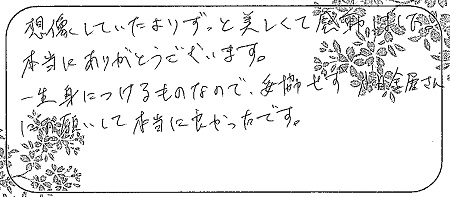 想像していたよりずっと美しくて感動しました
本当にありがとうございます。
一生身につけるものなので、妥協せず 金屋さん
にお願いして本当に良かったです。